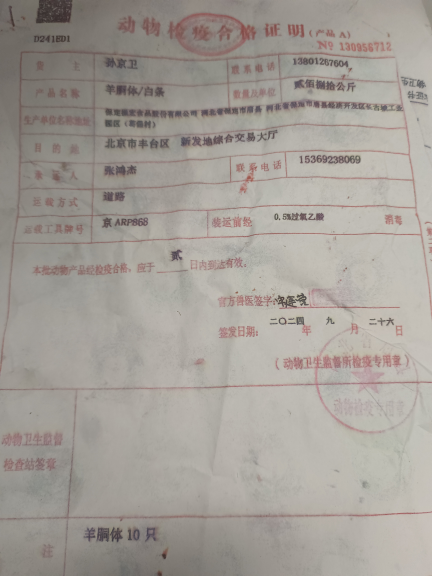 动物检疫合格证明(产品A)
D241ED1
№ 130956712
货主 孙京卫 联系电话 13801267604
产品名称 羊胴体/白条 数量及单位 贰佰捌拾公斤
生产单位名称地址
目的地 北京市丰台区 新发地综合交易大厅
承运人 张鸿杰 联系电话 15369238069
运输方式 道路
运载工具牌号 京ARP868 装运前经 0.5%过氧乙酸 消毒
本批动物产品经检疫合格,应于 贰 日内到达有效。
官方兽医签字:
签发日期: 二〇二四 年 九 月 二十六 日
(动物卫生监督所检疫专用章)
动物卫生监督
检查站签章
羊胴体10只
注